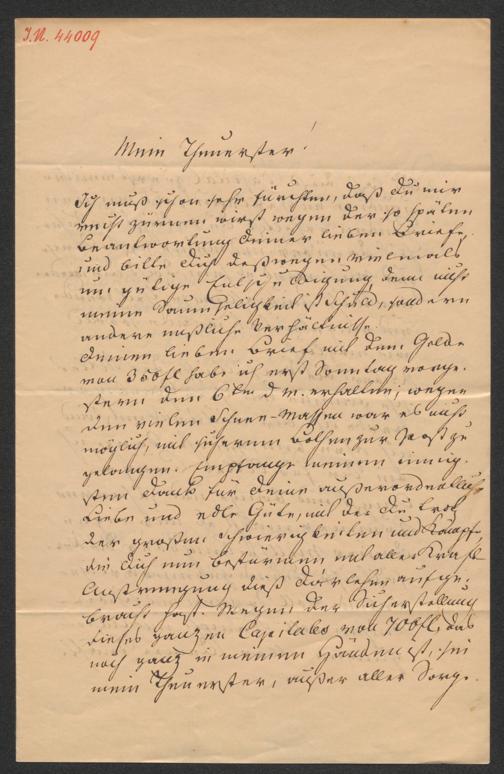 I.N. 44009
Mein Theuerster!
Ich muß schon sehr fürchten, daß Du mir
nicht zürnen wirst wegen der so späten
Beantwortung Deiner lieben Briefe,
und bitte Dich deßwegen vielmals
um gütige Entschuldigung, denn nicht
meine Saumseligkeit ist Schuld, sondern
andere mißliche Verhältnisse.
Deinen lieben Brief mit dem Gelde
von 350fl habe ich erst Sonntag vorge-
stern den 6ten d M. erhalten; wegen
den vielen Schnee-Massen war es nicht
möglich, mit sicherem Bothen zur Post zu
gelangen. Empfange meinen innig-
sten Dank für Deine außerordentliche
Liebe und edle Güte, mit der Du trotz
der großen Schwierigkeiten und Kämpfe,
die Dich nun bestürmen mit aller Kraft
Anstrengung dieß Darlehen aufge-
bracht hast. Wegen der Sicherstellung
dieses ganzen Capitales von 700fl, das
noch ganz in meinen Händen ist, sei
mein Theuerster, außer aller Sorge.